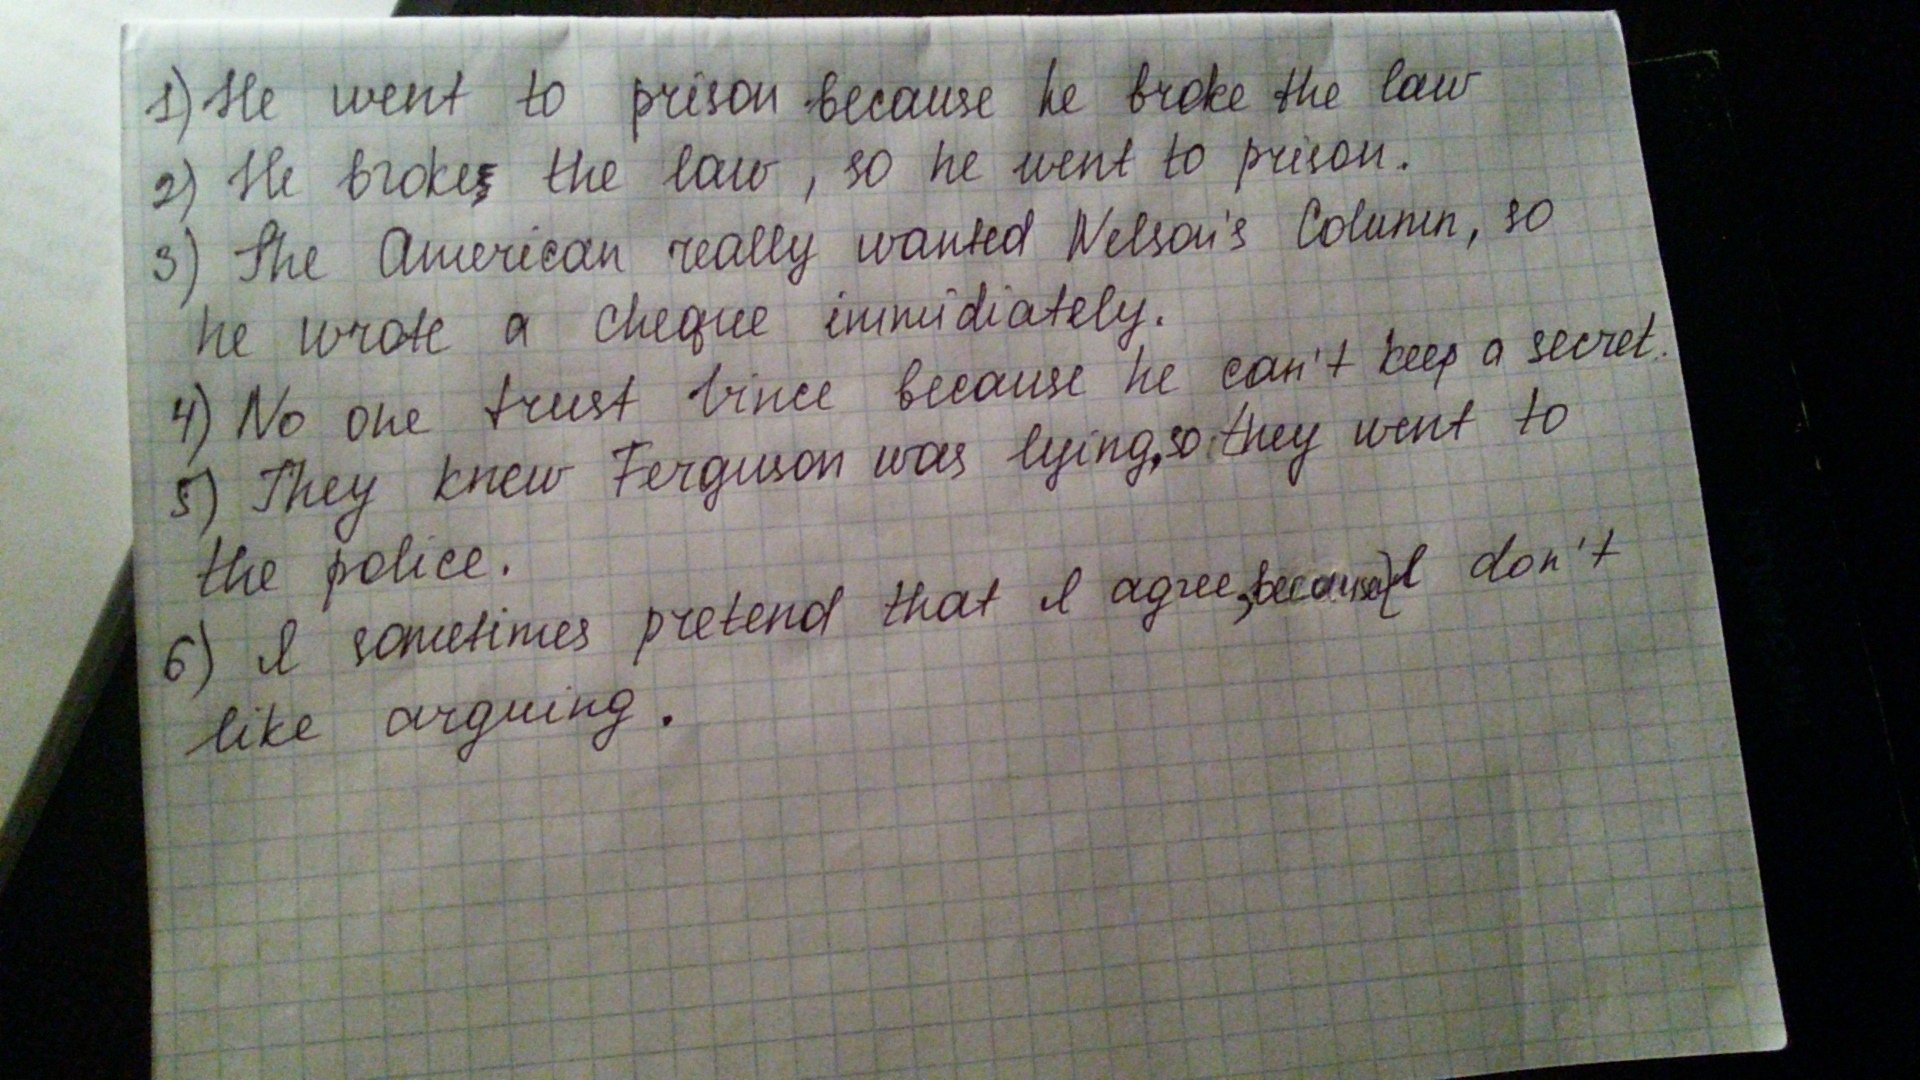 1) He went to prison because he broke the law
2) He broke the law, so he went to prison.
3) The American really wanted Nelson's Column, so
he wrote a cheque immidiately.
4) No one trust Vince because he can't keep a secret.
5) They knew Ferguson was lying, so they went to
the police.
6) I sometimes pretend that I agree, because I don't
like arguing.